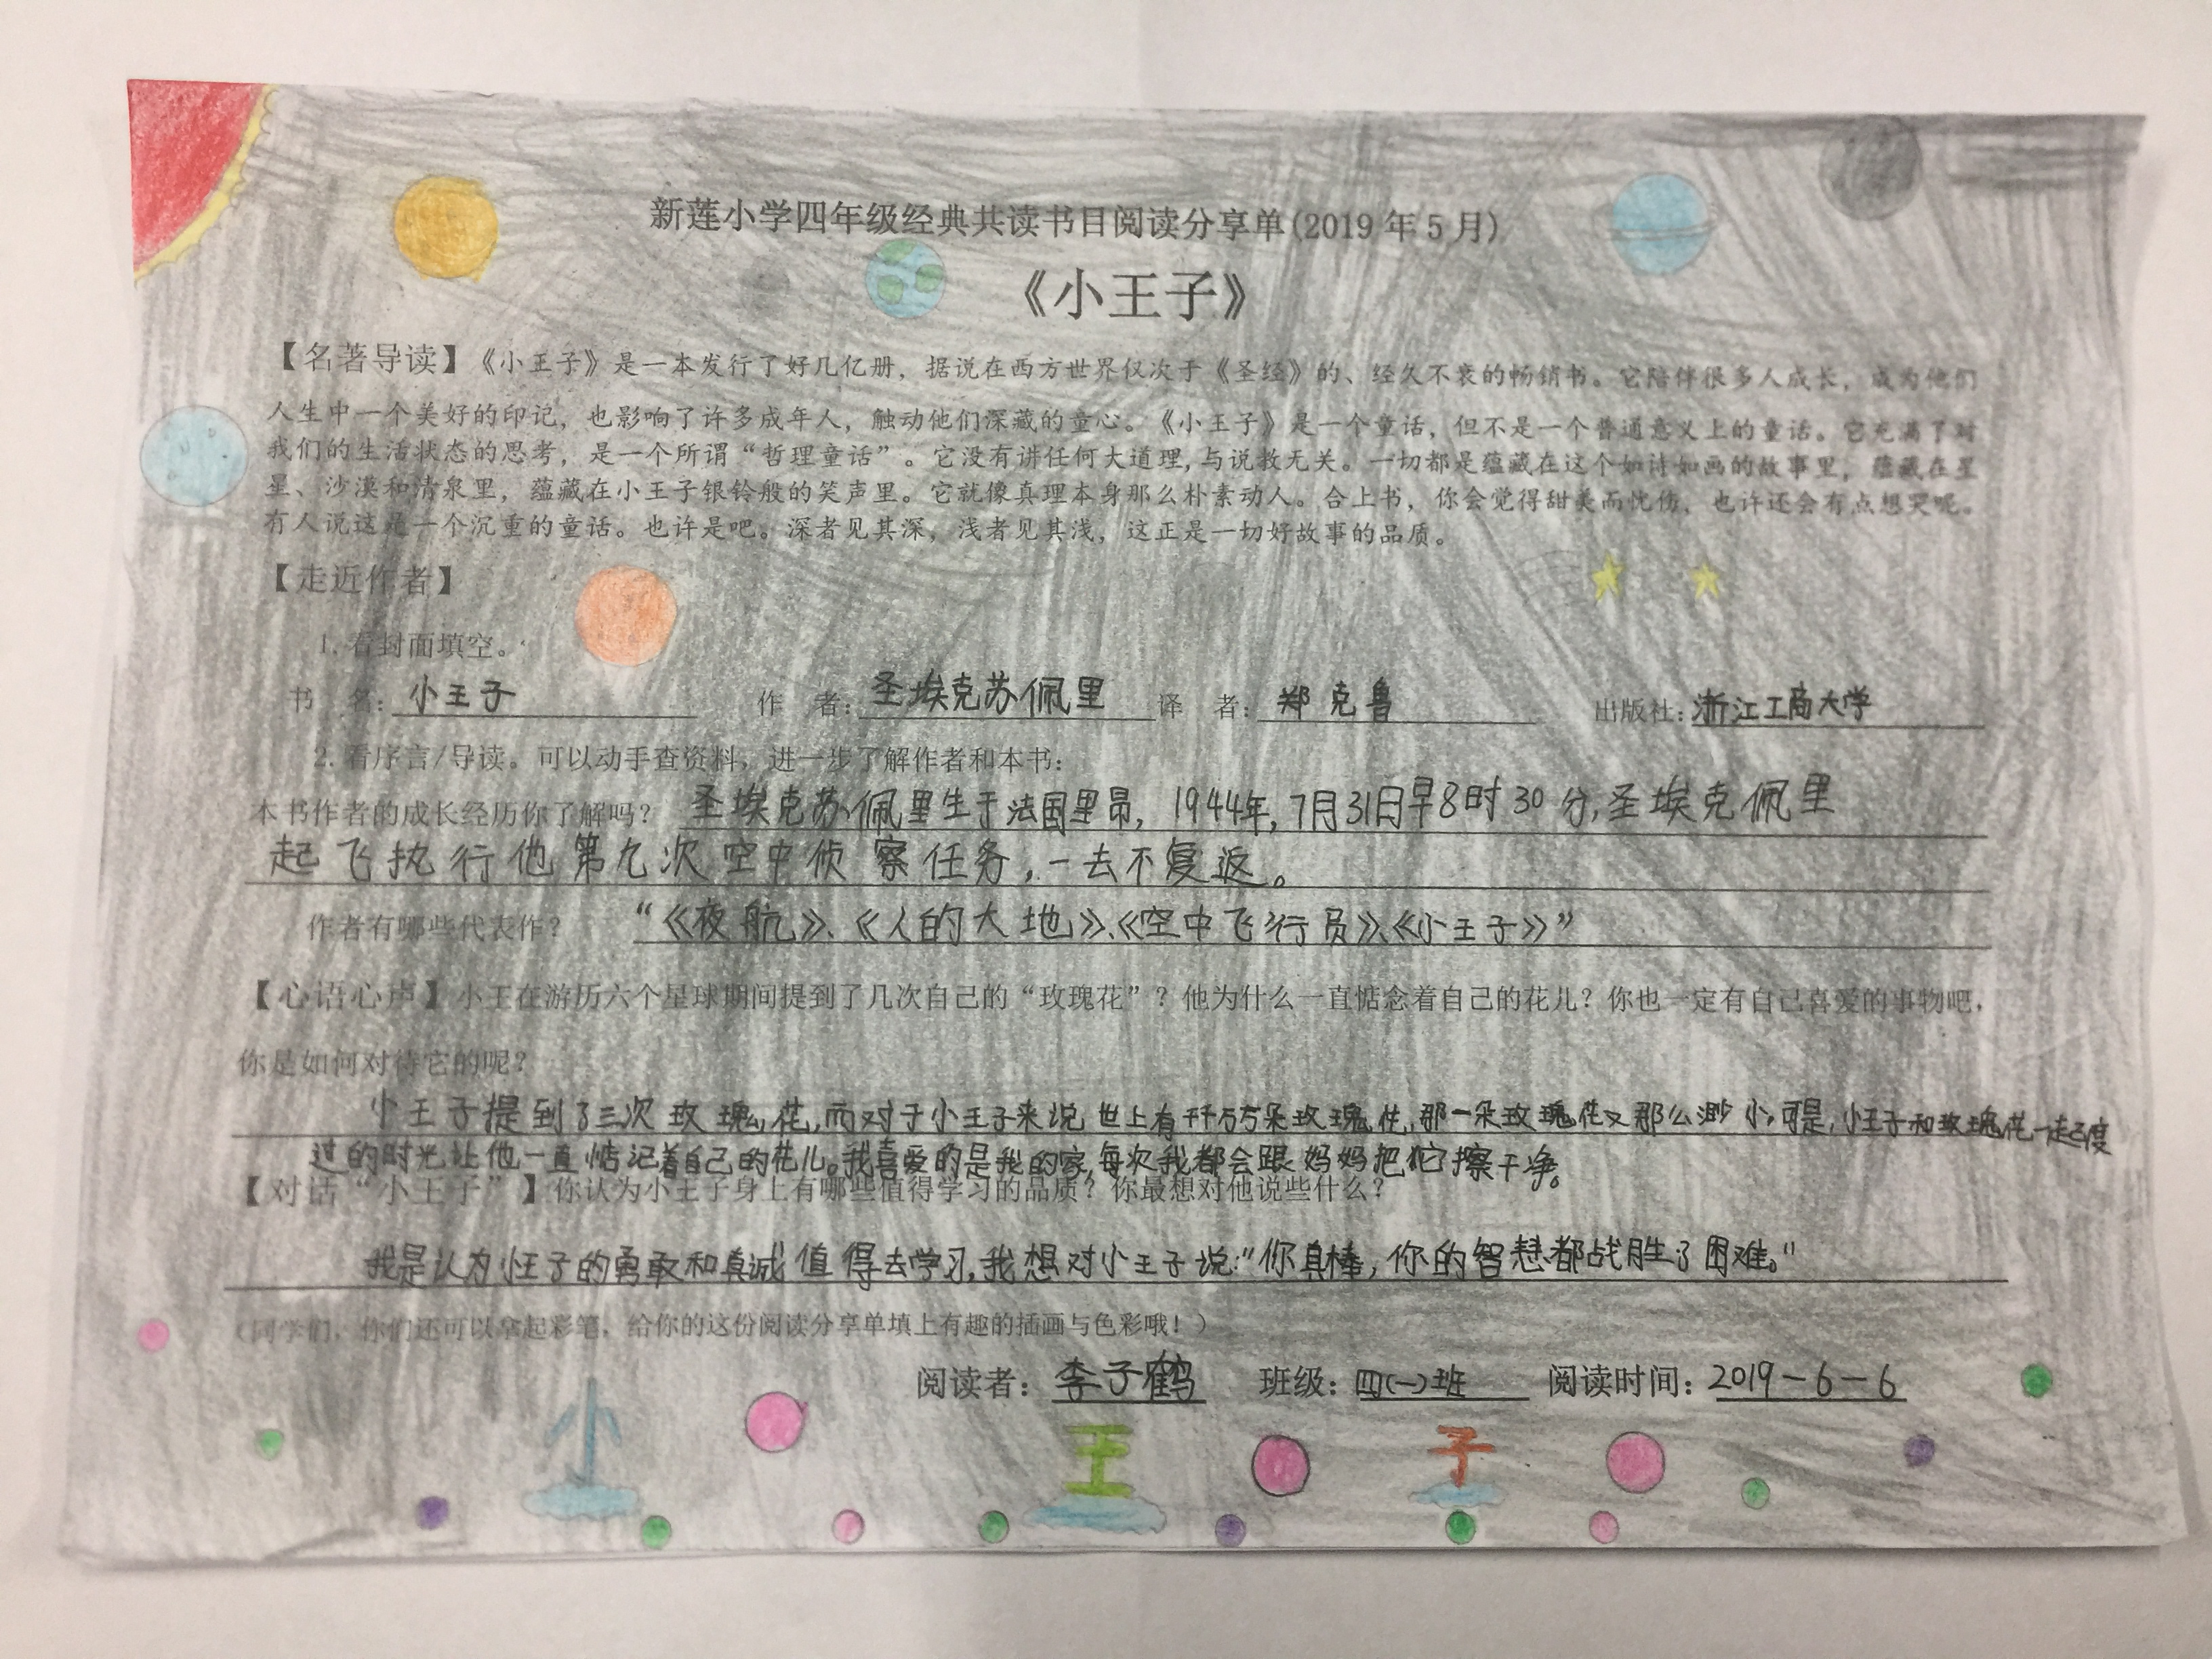 新莲小学四年级经典共读书目阅读分享单(2019年5月)
《小王子》
【名著导读】《小王子》是一本发行了好几亿册，据说在西方世界仅次于《圣经》的、经久不衰的畅销书。它陪伴很多人成长，成为他们
人生中一个美好的印记，也影响了许多成年人，触动他们深藏的童心。《小王子》是一个童话，但不是一个普通意义上的童话。它充满了对
我们的生活状态的思考，是一个所谓“哲理童话”。它没有讲任何大道理,与说教无关。一切都是蕴藏在这个如诗如画的故事里，蕴藏在星
星、沙漠和清泉里，蕴藏在小王子银铃般的笑声里。它就像真理本身那么朴素动人。合上书，你会觉得甜美而忧伤，也许还会有点想哭呢。
有人说这是一个沉重的童话。也许是吧。深者见其深，浅者见其浅，这正是一切好故事的品质。
【走近作者】
1.看封面填空。
书 名：小王子 作 者：圣埃克苏佩里 译 者：郑克鲁 出版社：浙江工商大学
2.看序言/导读。可以动手查资料，进一步了解作者和本书：
本书作者的成长经历你了解吗？ 圣埃克苏佩里生于法国里昂，1944年，7月31日早8时30分，圣埃克佩里
起飞执行他第九次空中侦察任务，一去不复返。
作者有哪些代表作？ “《夜航》、《人的大地》、《空中飞行员》、《小王子》”
【心语心声】小王在游历六个星球期间提到了几次自己的“玫瑰花”？他为什么一直惦念着自己的花儿？你也一定有自己喜爱的事物吧，
你是如何对待它的呢？
小王子提到了三次玫瑰花，而对于小王子来说世上有千万朵玫瑰花，那一朵玫瑰花又那么渺小，可是，小王子和玫瑰花一起度
过的时光让他一直惦记着自己的花儿。我喜爱的是我的家，每次我都会跟妈妈把它擦干净。
【对话“小王子”】你认为小王子身上有哪些值得学习的品质？你最想对他说些什么？
我是认为小王子的勇敢和真诚值得去学习，我想对小王子说：“你真棒，你的智慧都战胜了困难。”
（同学们，你们还可以拿起彩笔，给你的这份阅读分享单填上有趣的插画与色彩哦！）
阅读者：李子鹤 班级：四(一)班 阅读时间：2019-6-6
小 王 子